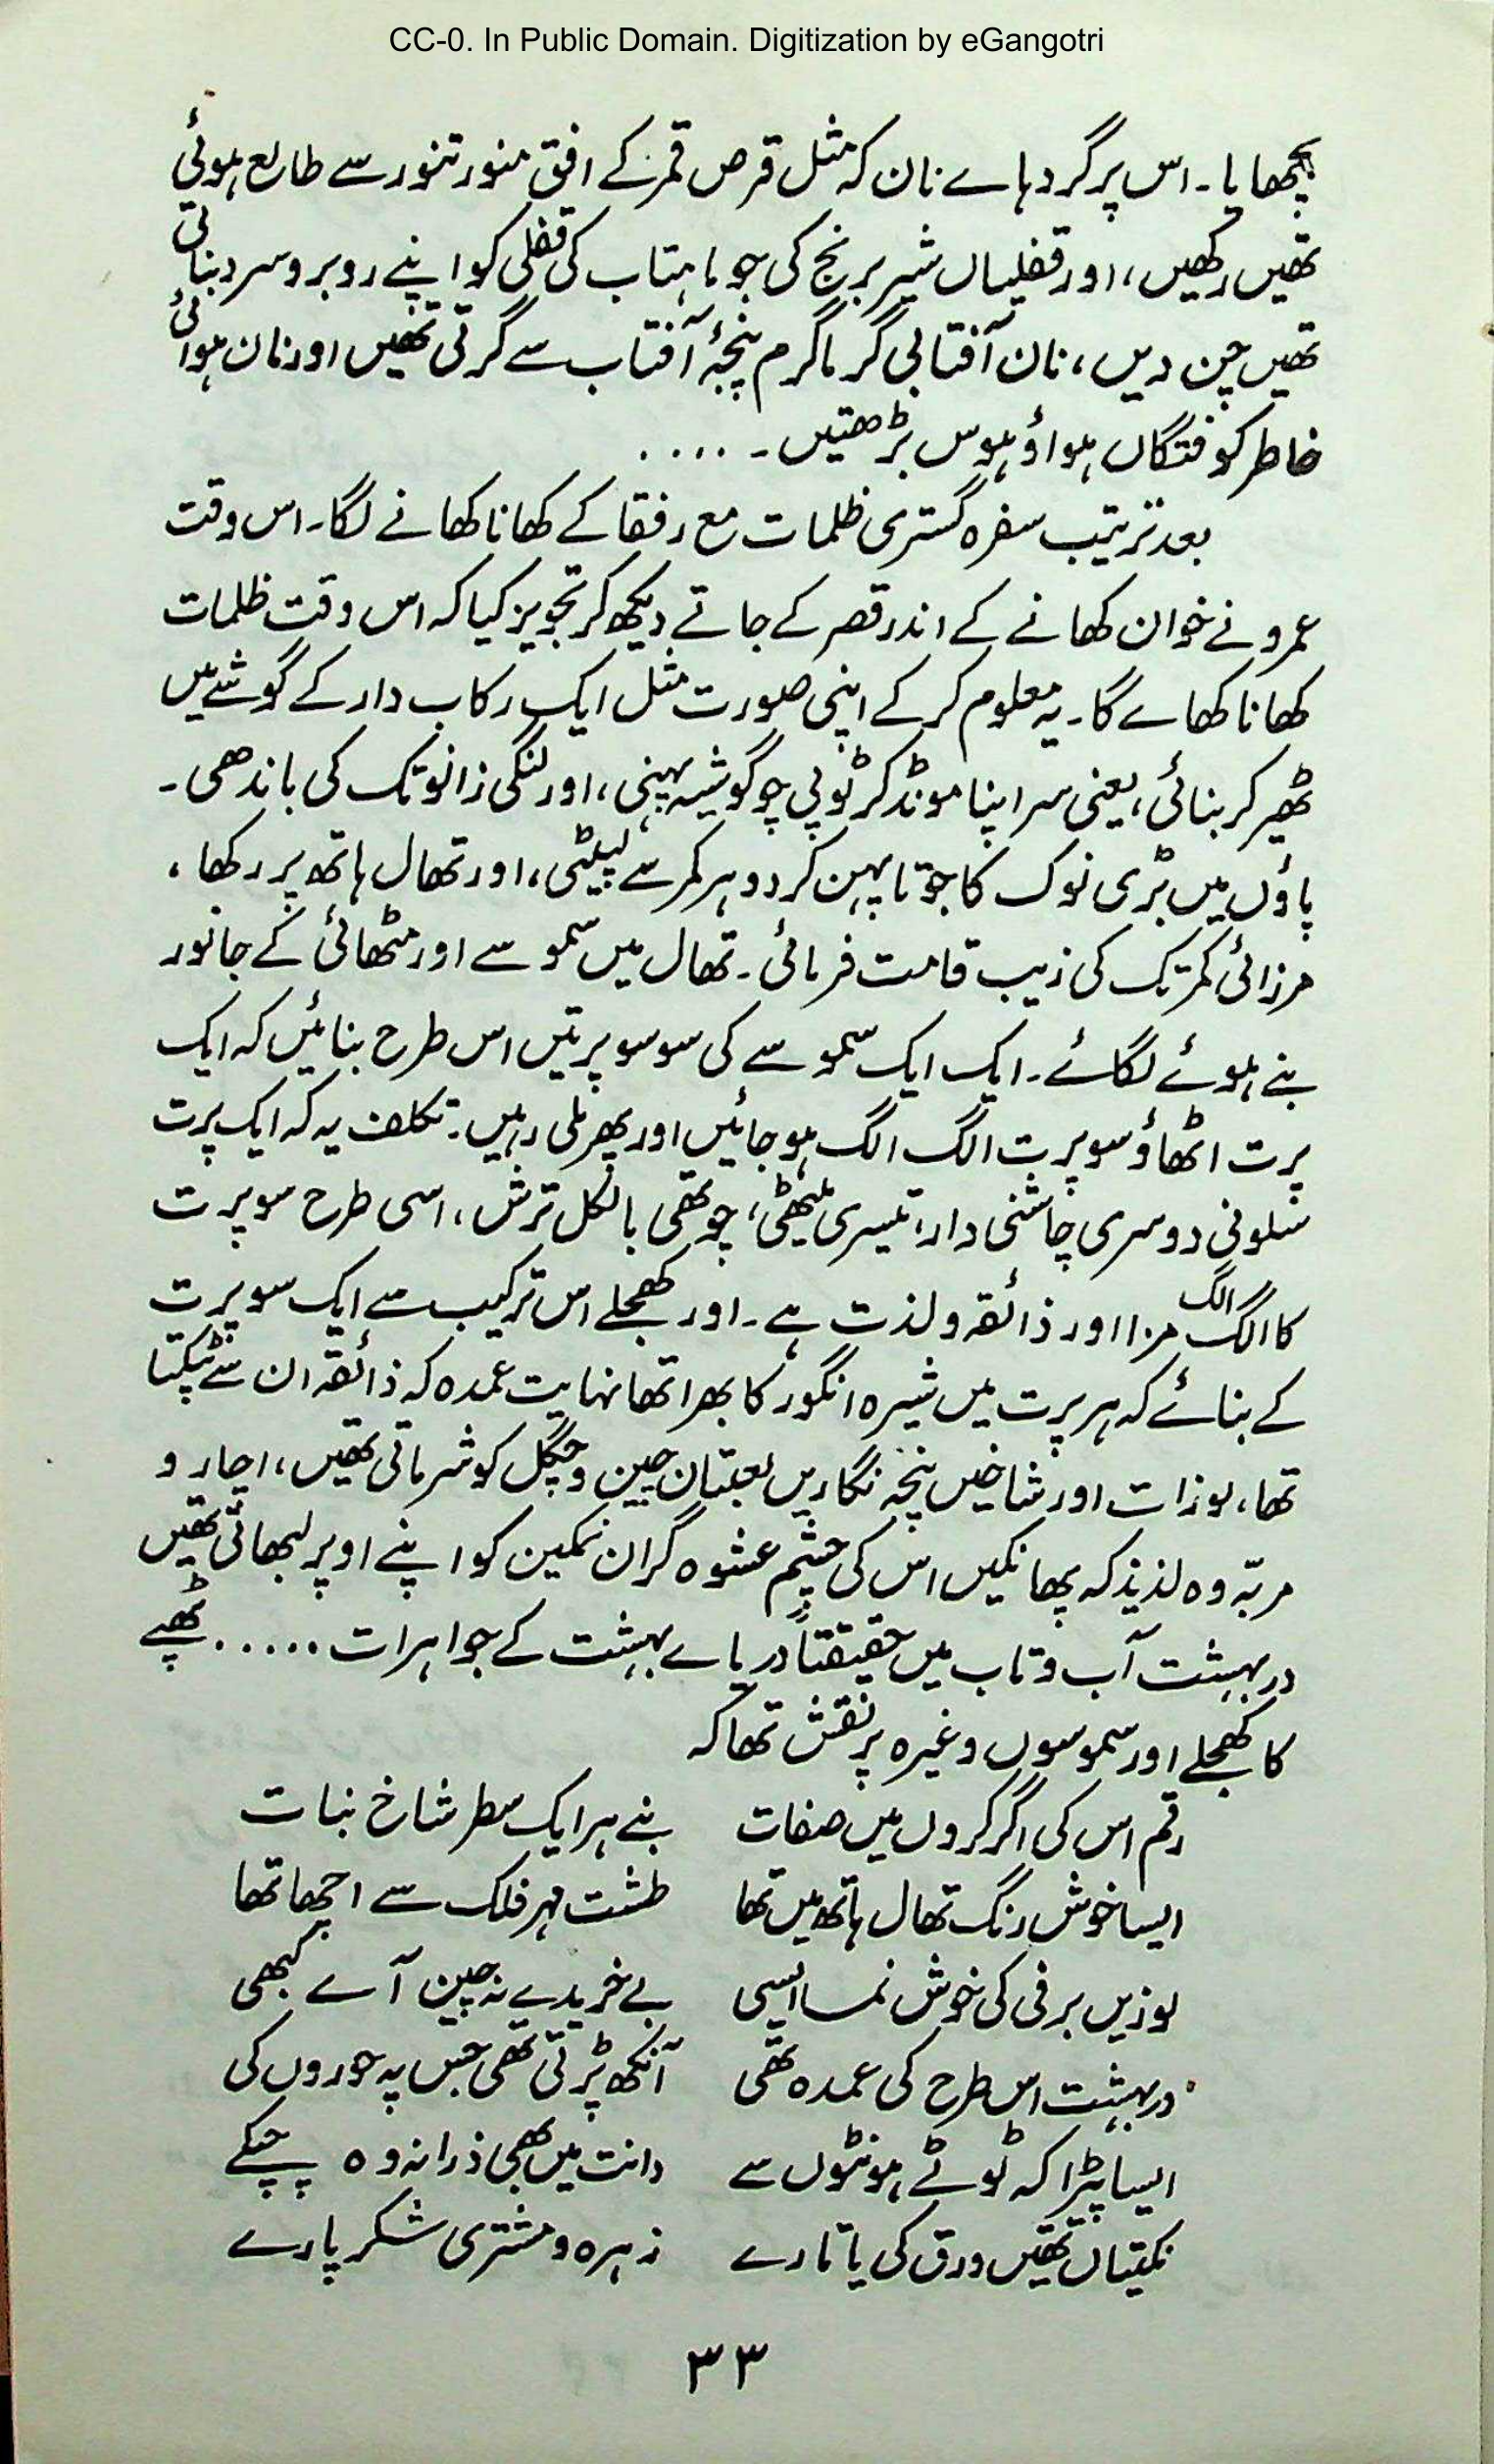 CC-0. In Public Domain. Digitization by eGangotri
بچھایا۔ اس پر گردہاے نان کہ مثل قرص قمر کے افق منور تنور سے طالع ہوئی
تھیں رکھیں، اور قفلیاں شیر برنج کی جو ماہتاب کی قفلی کو اپنے روبرو سرد بناتی
تھیں چن دیں، نان آفتابی گرماگرم پنجۂ آفتاب سے گرتی تھیں اور نان ہوائی
خاطر کوفتگاں ہوا و ہوس بڑھتیں۔ ....
بعد ترتیب سفرہ گستری ظلمات مع رفقا کے کھانا کھانے لگا۔ اس وقت
عمرو نے خوان کھانے کے اندر قصر کے جاتے دیکھ کر تجویز کیا کہ اس وقت ظلمات
کھانا کھاے گا۔ یہ معلوم کر کے اپنی صورت مثل ایک رکاب دار کے گوشے میں
ٹھیر کر بنائی، یعنی سر اپنا مونڈ کر ٹوپی چو گوشیہ پہنی، اور لنگی زانو تک کی باندھی۔
پاؤں میں بڑی نوک کا جوتا پہن کر دوہر کمر سے لپیٹی، اور تھال ہاتھ پر رکھا،
مرزائی کمر تک کی زیب قامت فرمائی۔ تھال میں سموسے اور مٹھائی کے جانور
بنے ہوئے لگائے۔ ایک ایک سموسے کی سو سو پرتیں اس طرح بنائیں کہ ایک
پرت اٹھاؤ سو پرت الگ الگ ہو جائیں اور پھر ملی رہیں۔ تکلف یہ کہ ایک پرت
سلونی دوسری چاشنی دار، تیسری میٹھی، چوتھی بالکل ترش، اسی طرح سو پرت
کا الگ الگ مزا اور ذائقہ و لذت ہے۔ اور کھجلے اس ترکیب سے ایک سو پرت
کے بنائے کہ ہر پرت میں شیرہ انگور کا بھرا تھا نہایت عمدہ کہ ذائقہ ان سے ٹپکتا
تھا، لوزات اور شاخیں پنجہ نگاریں لعبتان چین و چگل کو شرماتی تھیں، اچار و
مربّہ وہ لذیذ کہ پھانکیں اس کی چشم عشوہ گران نمکین کو اپنے اوپر لبھاتی تھیں
در بہشت آب و تاب میں حقیقتاً دریاے بہشت کے جواہرات ..... ٹھپے
کا کھجلے اور سموسوں وغیرہ پر نقش تھا کہ
رقم اس کی اگر کروں میں صفات بنے ہر ایک سطر شاخ نبات
ایسا خوش رنگ تھال ہاتھ میں تھا طشت مہر فلک سے اچھا تھا
لوزیں برفی کی خوش نما ایسی بے خریدے نہ چین آے کبھی
در بہشت اس طرح کی عمدہ تھی آنکھ پڑتی تھی جس پہ حوروں کی
ایسا پیڑا کہ ٹوٹے ہونٹوں سے دانت میں بھی ذرا نہ وہ چپکے
نکتیاں تھیں ورق کی یا تارے زہرہ و مشتری شکر پارے
۳۳